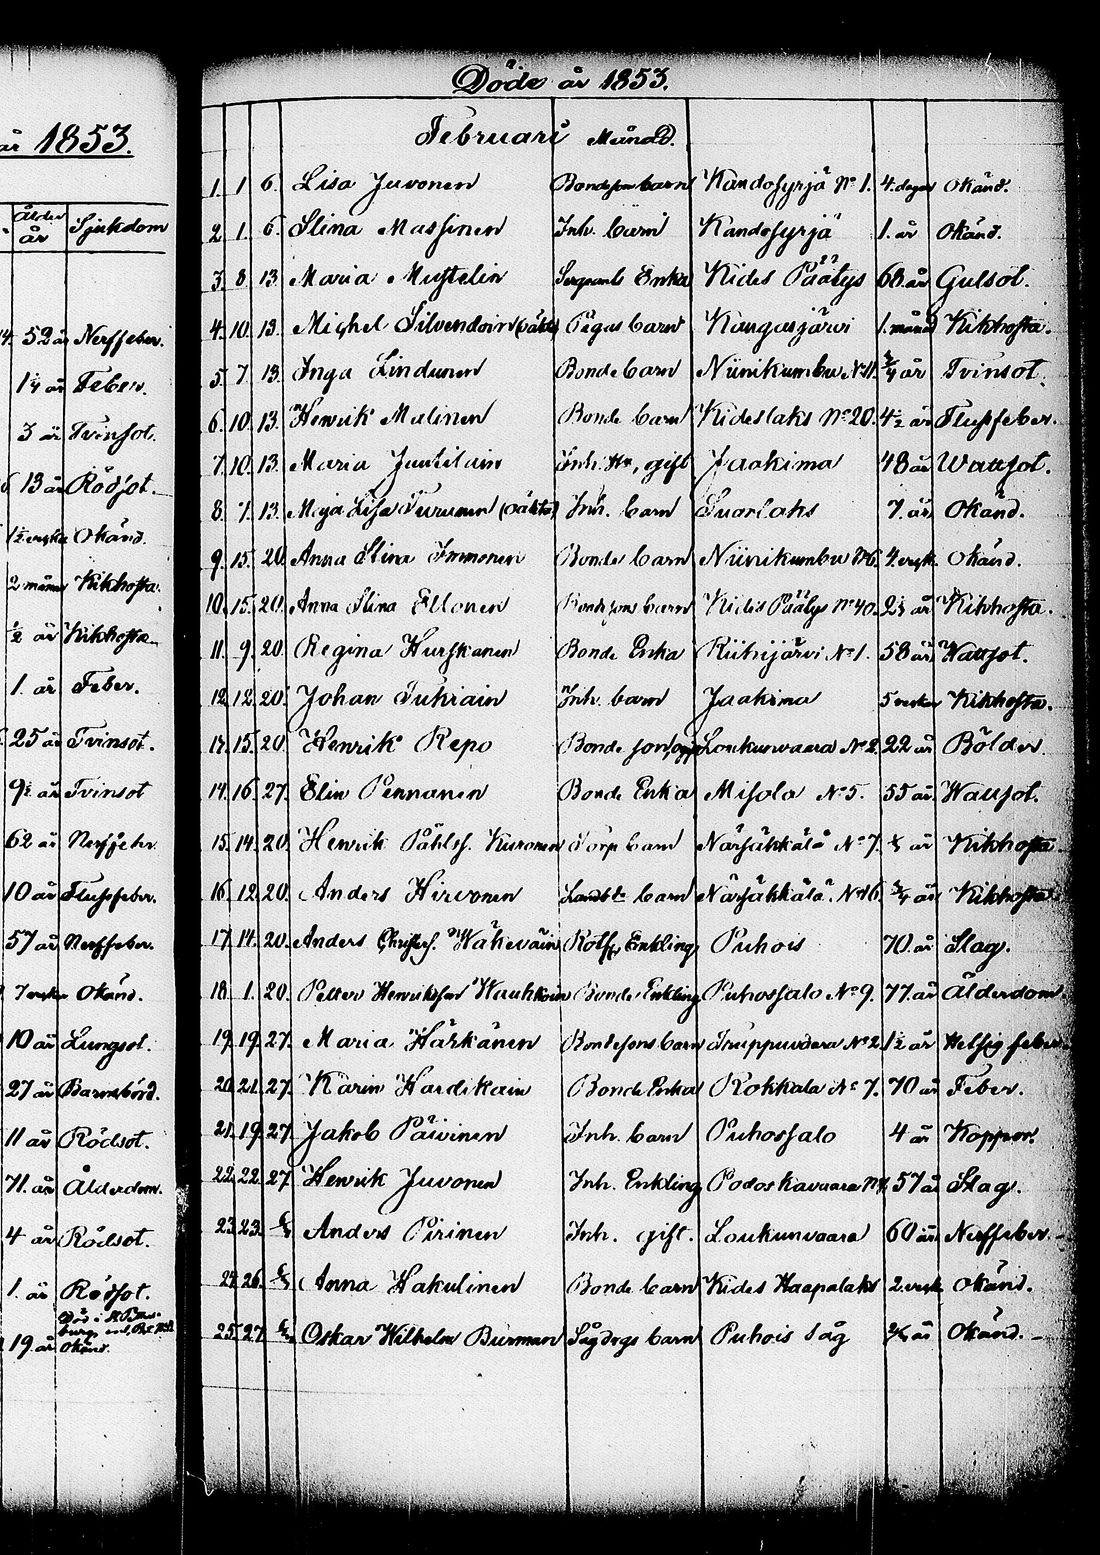 år 1853.
Ålder år Sjukdom
52 år Nerffeber.
1 1/4 år Feber.
3 år Tvinsot.
13 år Rödsot.
Okänd.
2 månad Kikhosta.
1/2 år Kikhosta.
1. år Feber.
25 år Tvinsot.
9 1/2 år Tvinsot
62 år Nerffebr.
10 år Flussfeber.
57 år Nerffeber.
7 veckor Okänd.
10 år Lungsot.
27 år Barnsbörd.
11 år Rödsot.
71. år Ålderdom.
4 år Rödsot.
1. år Rödsot.
19. år Okänd.
Döde år 1853.
Februari Månad.
1. 1 6. Lisa Juvonen Bondeson barn Kandosyrjä No 1. 4. dagar Okänd.
2 1. 6. Stina Massinen Inh. barn Kandosyrjä 1. år Okänd.
3 8 13. Maria Mustelin Sergeants Enka Kides Päätys 68 år Gulsot.
4. 10. 13. Michel Silvendoin (oäkta) Pigas barn Kangasjärvi 1. månad Kikhosta.
5 7 13. Inga Lindunen Bonde barn Niinikumbu No 11. 3/4 år Tvinsot.
6. 10. 13. Henrik Mulinen Bonde barn Kideslaks No 20. 4 1/2 år Flussfeber.
7. 10. 13. Maria Juutilain Inh. gift Jaakima 48 år Wattsot.
8. 7. 13. Maja Lisa Turunen (oäkta) Inh. barn Suorlaks 7. år Okänd.
9. 15. 20. Anna Stina Immonen Bonde barn Niinikumbu No 6. 4. veck. Okänd.
10. 15. 20. Anna Stina Ellonen Bondesons barn Kides Päätys No 40. 2 1/2 år Kikhosta.
11. 9. 20 Regina Hurskanen Bonde Enka Riihijärvi No 1. 58 år Wattsot.
12. 12. 20. Johan Tukiain Inh. barn Jaakima 5 veckor Kikhosta.
14. 15. 20. Henrik Repo Bonde son, Loukunvaara No 2. 22 år Bölder.
14. 16. 27. Elin Pennanen Bonde Enka Misola No 5. 55 år. Wattsot.
15. 14. 20. Henrik Påhls. Kuronen Torp barn Närsäkkälä No 7. år Kikhosta.
16. 12. 20. Anders Hirvonen Landb. barn Närsäkkälä. No 16. 3/4 år Kikhosta.
17. 14. 20. Anders Christers. Wäkeväin Enkling Puhois 70. år Slag.
18. 1. 20. Petter Henriksson Wauhkoin Bonde Enkling Puhossalo No 9. 77. år Ålderdom.
19. 19. 27. Maria Härkänen Bondesons barn Truppuvaara No 2. 1 1/2 år Hetsig feber.
20. 21. 27. Karin Hardikain Bonde Enka Rokkala No 7. 70 år Feber.
21. 19. 27. Jakob Päivinen Inh. barn Puhossalo 4 år Koppor.
22. 22. 27. Henrik Juvonen Inh. Enkling Podoskavaara 57 år Slag.
23. 23. 6/3 Anders Pirinen Inh. gift. Loukunvaara 60 år Nerffeber.
24. 26. 6/3 Anna Hakulinen Bonde barn Kides Haapalaks 2. veck Okänd.
25. 27. 6/3 Oskar Wilhelm Burman Sågdrgs barn Puhois såg år Okänd.